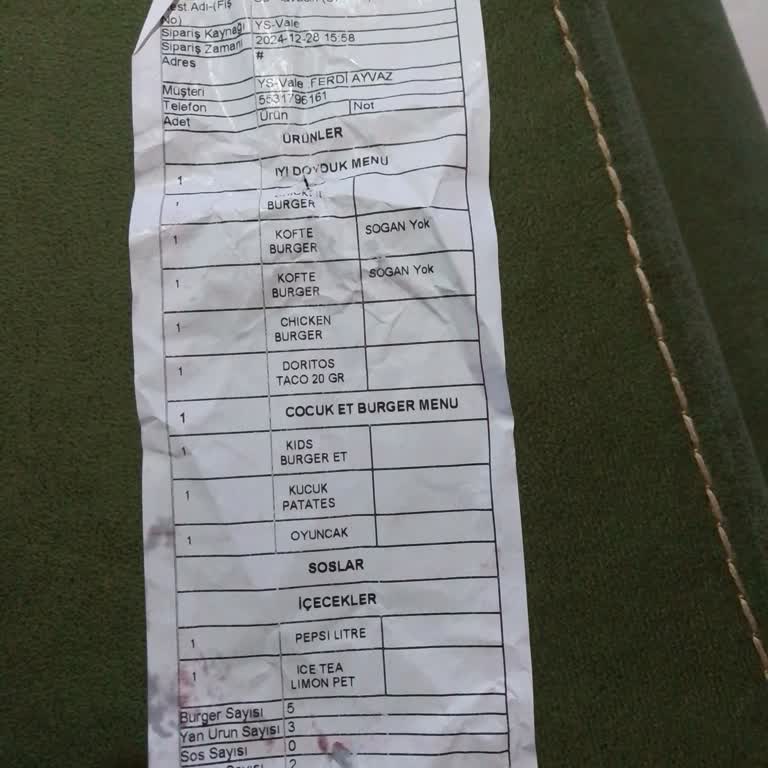 est.Adı-(Fiş
No)
Sipariş Kaynağı YS-Vale
Sipariş Zamanı 2024-12-28 15:58
Adres #
Müşteri YS-Vale FERDİ AYVAZ
Telefon 5531796161
Adet Ürün Not
ÜRÜNLER
1 IYI DOYDUK MENU
BURGER
1 KOFTE SOGAN Yok
BURGER
1 KOFTE SOGAN Yok
BURGER
1 CHICKEN
BURGER
1 DORITOS
TACO 20 GR
1 COCUK ET BURGER MENU
1 KIDS
BURGER ET
1 KUCUK
PATATES
1 OYUNCAK
SOSLAR
İÇECEKLER
1 PEPSI LITRE
1 ICE TEA
LIMON PET
Burger Sayısı 5
Yan Urun Sayısı 3
Sos Sayısı 0
Sayısı 2